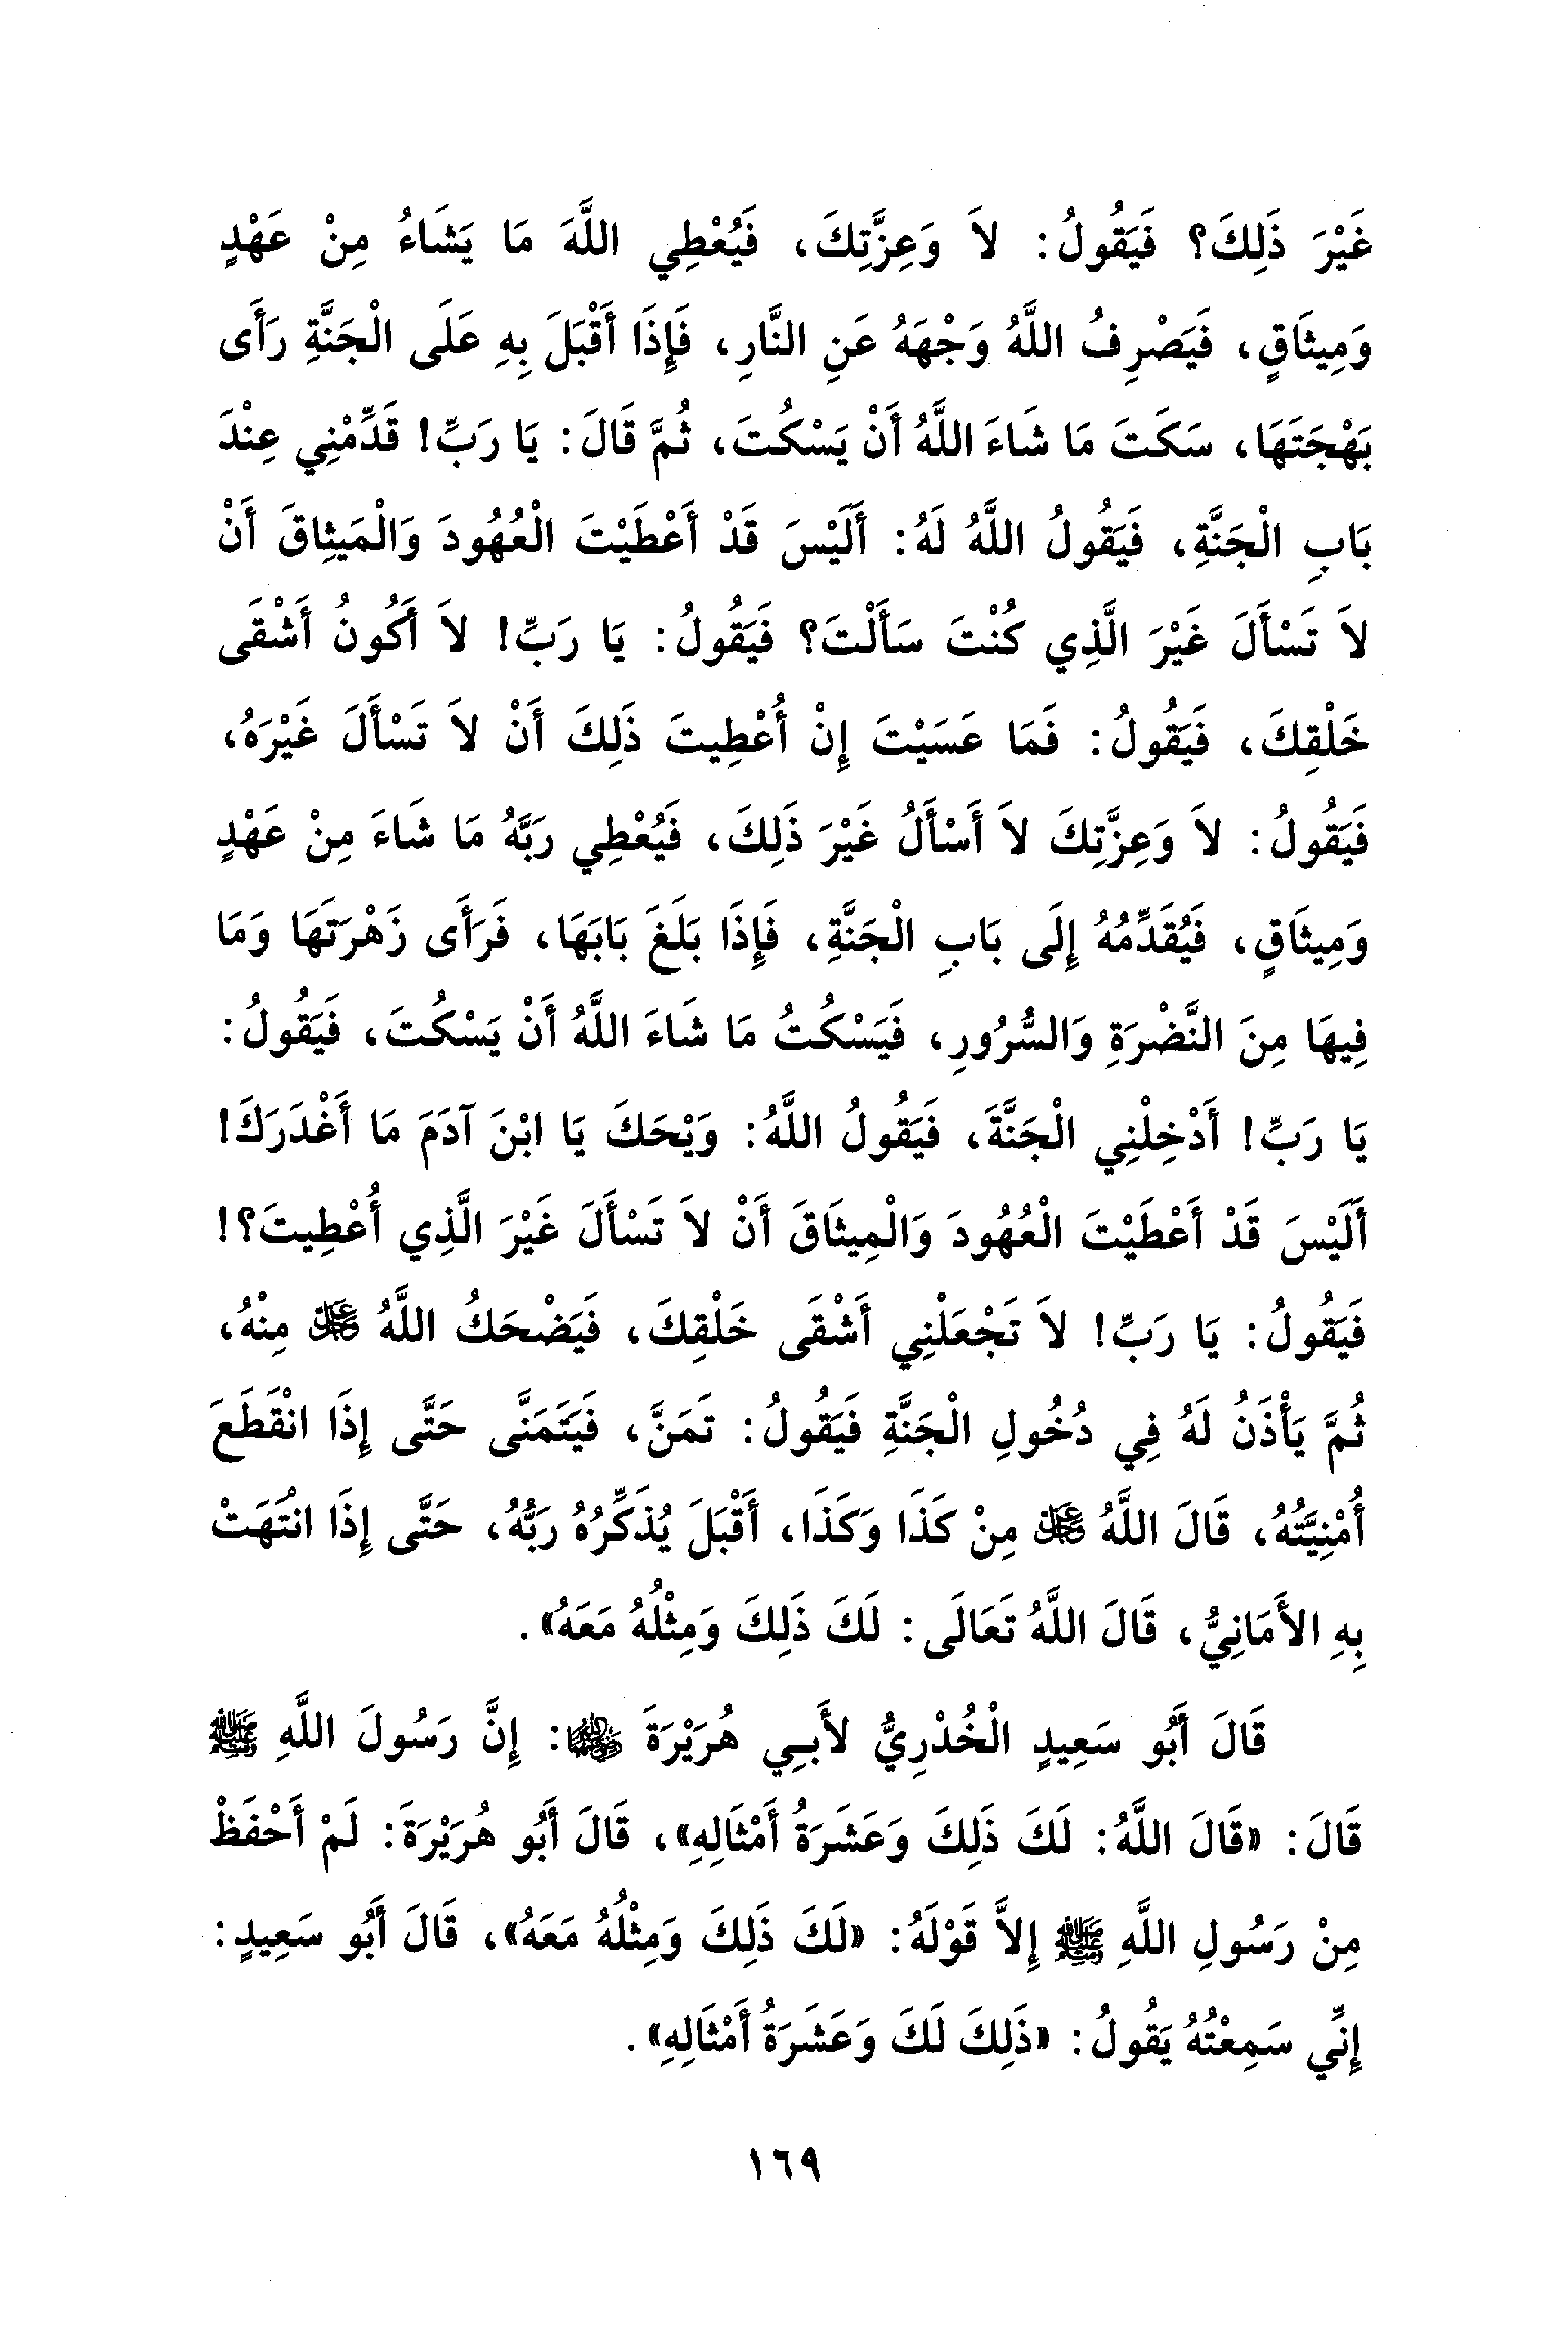 غَيْرَ ذَلِكَ؟ فَيَقُولُ: لاَ وَعِزَّتِكَ، فَيُعْطِي اللَّهَ مَا يَشَاءُ مِنْ عَهْدٍ
وَمِيثَاقٍ، فَيَصْرِفُ اللَّهُ وَجْهَهُ عَنِ النَّارِ، فَإِذَا أَقْبَلَ بِهِ عَلَى الْجَنَّةِ رَأَى
بَهْجَتَهَا، سَكَتَ مَا شَاءَ اللَّهُ أَنْ يَسْكُتَ، ثُمَّ قَالَ: يَا رَبِّ! قَدِّمْنِي عِنْدَ
بَابِ الْجَنَّةِ، فَيَقُولُ اللَّهُ لَهُ: أَلَيْسَ قَدْ أَعْطَيْتَ الْعُهُودَ وَالْمَيثِاقَ أَنْ
لاَ تَسْأَلَ غَيْرَ الَّذِي كُنْتَ سَأَلْتَ؟ فَيَقُولُ: يَا رَبِّ! لاَ أَكُونُ أَشْقَى
خَلْقِكَ، فَيَقُولُ: فَمَا عَسَيْتَ إِنْ أُعْطِيتَ ذَلِكَ أَنْ لاَ تَسْأَلَ غَيْرَهُ،
فَيَقُولُ: لاَ وَعِزَّتِكَ لاَ أَسْأَلُ غَيْرَ ذَلِكَ، فَيُعْطِي رَبَّهُ مَا شَاءَ مِنْ عَهْدٍ
وَمِيثَاقٍ، فَيُقَدِّمُهُ إِلَى بَابِ الْجَنَّةِ، فَإِذَا بَلَغَ بَابَهَا، فَرَأَى زَهْرَتَهَا وَمَا
فِيهَا مِنَ النَّضْرَةِ وَالسُّرُورِ، فَيَسْكُتُ مَا شَاءَ اللَّهُ أَنْ يَسْكُتَ، فَيَقُولُ:
يَا رَبِّ! أَدْخِلْنِي الْجَنَّةَ، فَيَقُولُ اللَّهُ: وَيْحَكَ يَا ابْنَ آدَمَ مَا أَغْدَرَكَ!
أَلَيْسَ قَدْ أَعْطَيْتَ الْعُهُودَ وَالْمِيثَاقَ أَنْ لاَ تَسْأَلَ غَيْرَ الَّذِي أُعْطِيتَ؟!
فَيَقُولُ: يَا رَبِّ! لاَ تَجْعَلْنِي أَشْقَى خَلْقِكَ، فَيَضْحَكُ اللَّهُ عَزَّ وَجَلَّ مِنْهُ،
ثُمَّ يَأْذَنُ لَهُ فِي دُخُولِ الْجَنَّةِ فَيَقُولُ: تَمَنَّ، فَيَتَمَنَّى حَتَّى إِذَا انْقَطَعَ
أُمْنِيَّتُهُ، قَالَ اللَّهُ عَزَّ وَجَلَّ مِنْ كَذَا وَكَذَا، أَقْبَلَ يُذَكِّرُهُ رَبُّهُ، حَتَّى إِذَا انْتَهَتْ
بِهِ الأَمَانِيُّ، قَالَ اللَّهُ تَعَالَى: لَكَ ذَلِكَ وَمِثْلُهُ مَعَهُ».
قَالَ أَبُو سَعِيدٍ الْخُدْرِيُّ لأَبِي هُرَيْرَةَ رضي الله عنهما: إِنَّ رَسُولَ اللَّهِ ﷺ
قَالَ: «قَالَ اللَّهُ: لَكَ ذَلِكَ وَعَشَرَةُ أَمْثَالِهِ»، قَالَ أَبُو هُرَيْرَةَ: لَمْ أَحْفَظْ
مِنْ رَسُولِ اللَّهِ ﷺ إِلاَّ قَوْلَهُ: «لَكَ ذَلِكَ وَمِثْلُهُ مَعَهُ»، قَالَ أَبُو سَعِيدٍ:
إِنِّي سَمِعْتُهُ يَقُولُ: «ذَلِكَ لَكَ وَعَشَرَةُ أَمْثَالِهِ».
١٦٩